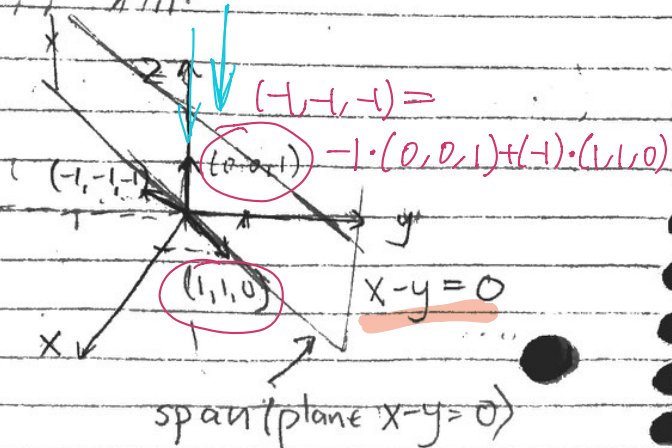 z
(-1,-1,-1) =
(0,0,1) -1·(0,0,1)+(-1)·(1,1,0)
(-1,-1,-1)
y
(1,1,0) x-y=0
x
span(plane x-y=0)